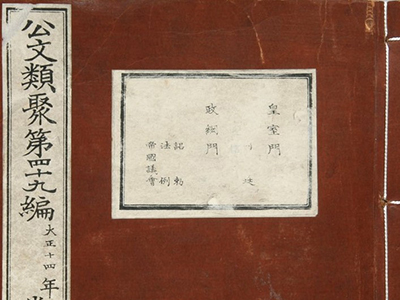 公文類聚第四十九編
大正十四年
皇室門
政綱門
詔勅
法例
帝國議會